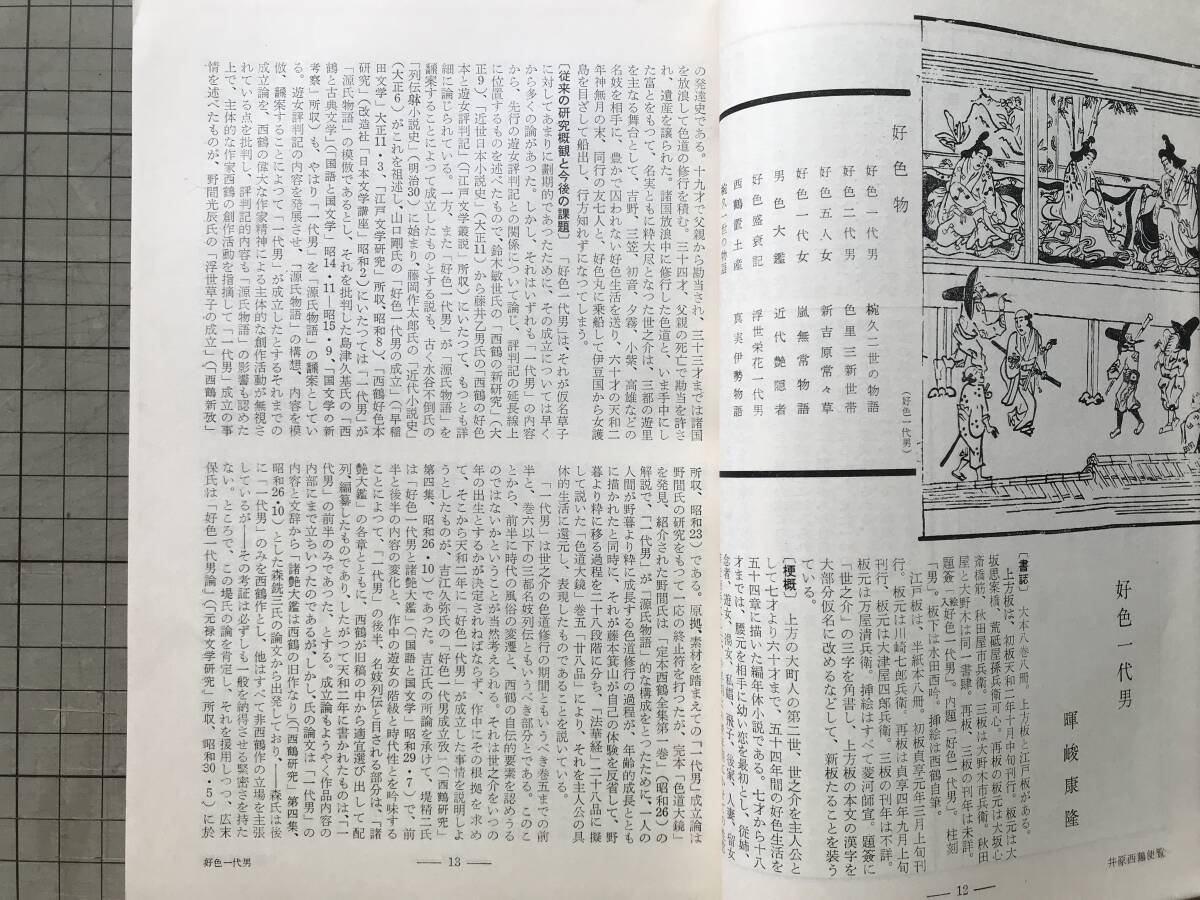 好色物
好色一代男
好色二代男
好色五人女
好色一代女
男色大鑑
好色盛衰記
西鶴置土産
椀久一世の物語
椀久二世の物語
色里三新世帯
新吉原常々草
嵐無常物語
近代艶隠者
浮世栄花一代男
真実伊勢物語
(好色一代男)
好色一代男
暉峻康隆
〔書誌〕
上方板は、大本八巻八冊。上方板と江戸板がある。
上方板は、初板天和二年十月中旬刊行。板元は大
坂思案橋、荒砥屋孫兵衛可心。再板の板元は大坂心
斎橋筋、秋田屋市兵衛。三板は大野木市兵衛。秋田
屋と大野木は同一書肆。再板、三板の刊年は未詳。
題簽「絵入好色一代男」。内題「好色一代男」。柱刻
「男」。板下は水田西吟。挿絵は西鶴自筆。
江戸板は、半紙本八冊。初板貞享元年三月上旬刊
行。板元は川崎七郎兵衛。再板は貞享四年九月上旬
刊行、板元は大津屋四郎兵衛。三板の刊年は不詳。
板元は万屋清兵衛。挿絵はすべて菱河師宣。題簽に
「世之介」の三字を角書し、上方板の本文の漢字を
大部分仮名に改めるなどして、新板たることを装う
ている。
〔梗概〕 上方の大町人の第二世、世之介を主人公と
して七才より六十才まで、五十四年間の好色生活を
五十四章に描いた編年体小説である。七才から十八
才までは、腰元を相手に幼い恋を最初とし、従姉、
念者、遊女、湯女、私娼、飛子、後家、人妻、留女
井原西鶴便覧
— 12 —
の発達史である。十九才で父親から勘当され、三十三才までは諸国
を放浪して色道の修行を積む。三十四才、父親の死亡で勘当を許さ
れ、遺産を譲られた。諸国放浪中に修行した色道と、いま手中にし
た富とをもつて、名実ともに粋大尽となつた世之介は、三都の遊里
を主なる舞台として、吉野、三笠、初音、夕霧、小紫、高雄などの
名妓を相手に、豊かで囚われない好色生活を送り、六十才の天和二
年神無月の末、同行の友七人と、好色丸に乗船して伊豆国から女護
島を目ざして船出し、行方知れずになつてしまう。
〔従来の研究概観と今後の課題〕 「好色一代男」は、それが仮名草子
に対してあまりに劃期的であつたために、その成立については早く
から多くの論があつた。しかし、それはいずれも「一代男」の内容
から、先行の遊女評判記との関係について論じ、評判記の延長線上
に位置するものを述べたもので、鈴木敏也氏の「西鶴の新研究」(大
正9)、「近世日本小説史」(大正11)から藤井乙男氏の「西鶴の好色
本と遊女評判記」(「江戸文学叢説」所収)にいたつて、もつとも詳
細に論じられている。一方、また「好色一代男」が「源氏物語」を
飜案することによつて成立したものとする説も、古く水谷不倒氏の
「列伝躰小説史」(明治30)に始まり、藤岡作太郎氏の「近代小説史」
(大正6)がこれを祖述し、山口剛氏の「好色一代男の成立」(「早稲
田文学」大正11・3、「江戸文学研究」所収、昭和8)、「西鶴好色本
研究」(改造社「日本文学講座」昭和2)にいたつては「一代男」が
「源氏物語」の模倣であるとし、それを批判した島津久基氏の「西
鶴と古典文学」(「国語と国文学」昭和14・11―昭15・9、「国文学の新
考察」所収)も、やはり「一代男」を「源氏物語」の飜案としてい
る。遊女評判記の内容を発展させ、「源氏物語」の構想、内容を模
倣、飜案することによつて「一代男」が成立したとするそれまでの
成立論を、西鶴の偉大な作家精神による主体的な創作活動が無視さ
れている点を批判し、評判記的内容も「源氏物語」の影響も認めた
上で、主体的な作家西鶴の創作活動を指摘して「一代男」成立の事
情を述べたものが、野間光辰氏の「浮世草子の成立」(「西鶴新攷」
所収、昭和23)である。原拠、素材を踏まえての「一代男」成立論は
野間氏の研究をもつて一応の終止符を打つたが、完本「色道大鏡」
を発見、紹介された野間氏は「定本西鶴全集第一巻」(昭和26)の
解説で、「一代男」が「源氏物語」的な構成をとつたために、一人の
人間が野暮より粋に成長する色道修行の過程が、年齢的成長ととも
に描かれたと同時に、それが藤本箕山が自己の体験を反省して、野
暮より粋に移る過程を二十八段階に分ち、「法華経」二十八品に擬
して説いた「色道大鏡」巻五「廿八品」により、それを主人公の具
体的生活に還元し、表現したものであることを説いている。
「一代男」は世之介の色道修行の期間ともいうべき巻五までの前
半と、巻六以下の三都名妓列伝ともいうべき部分とである。このこ
とから、前半に時代の風俗の変遷と、西鶴の自伝的要素を認めうる
のではないかということが当然考えられる。それは世之介をいつの
年の出生とするかが決定されねばならず、作中にその根拠を求め
て、そこから天和二年に「好色一代男」が成立した事情を説明しよ
うとしたものが、吉江久弥氏の「好色一代男成立攷」(「西鶴研究」
第四集、昭和26・10)であつた。吉江氏の所論を承けて、堤精二氏
は「好色一代男と諸艶大鑑」(「国語と国文学」昭和29・7)で、前
半と後半の内容の変化と、作中の遊女の階級と時代性とを吟味する
ことによつて、「一代男」の後半、名妓列伝と目される部分は、「諸
艶大鑑」の各章とともに、西鶴が旧稿の中から適宜選び出して配
列、編纂したものであり、したがつて天和二年に書かれたものは、「一
代男」の前半のみであつた、とする。成立論もようやく作品内容の
内部にまで立ちいつたのであるが、しかし、氏の論文は「一代男」の
内容と文辞から「諸艶大鑑は西鶴の旧作なり」(「西鶴研究」第四集、
昭和26・10)とした森銑三氏の論文から出発しており、――森氏は後
に「一代男」のみを西鶴作とし、他はすべて非西鶴作の立場を主張
しているが――その考証は必ずしも一般を納得させる緊密さを持た
ない。ところで、この堤氏の論を肯定し、それを援用しつつ、広末
保氏は「好色一代男論」(「元禄文学研究」所収、昭和30・5)に於
— 13 —
好色一代男